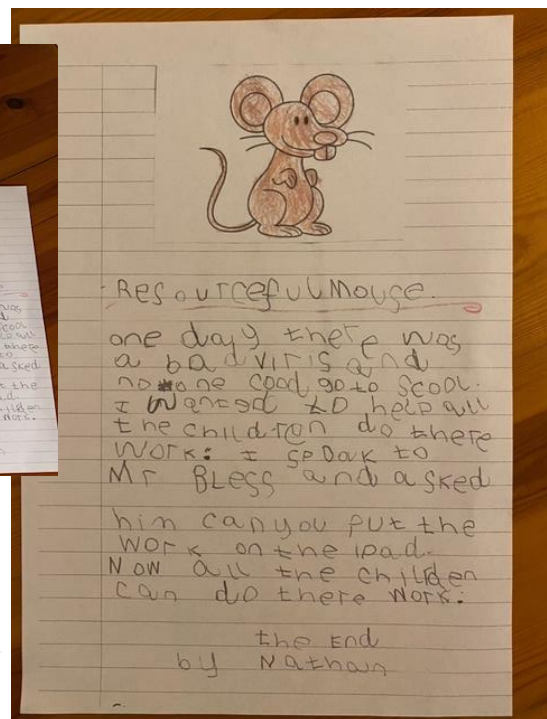 Resourceful Mouse.
one day there was
a bad viris and
no one cood go to scool.
I wanted to help all
the children do there
work. I spoak to
Mr Bless and asked
hin can you put the
work on the ipad.
Now all the children
can do there work.
the End
by Nathan